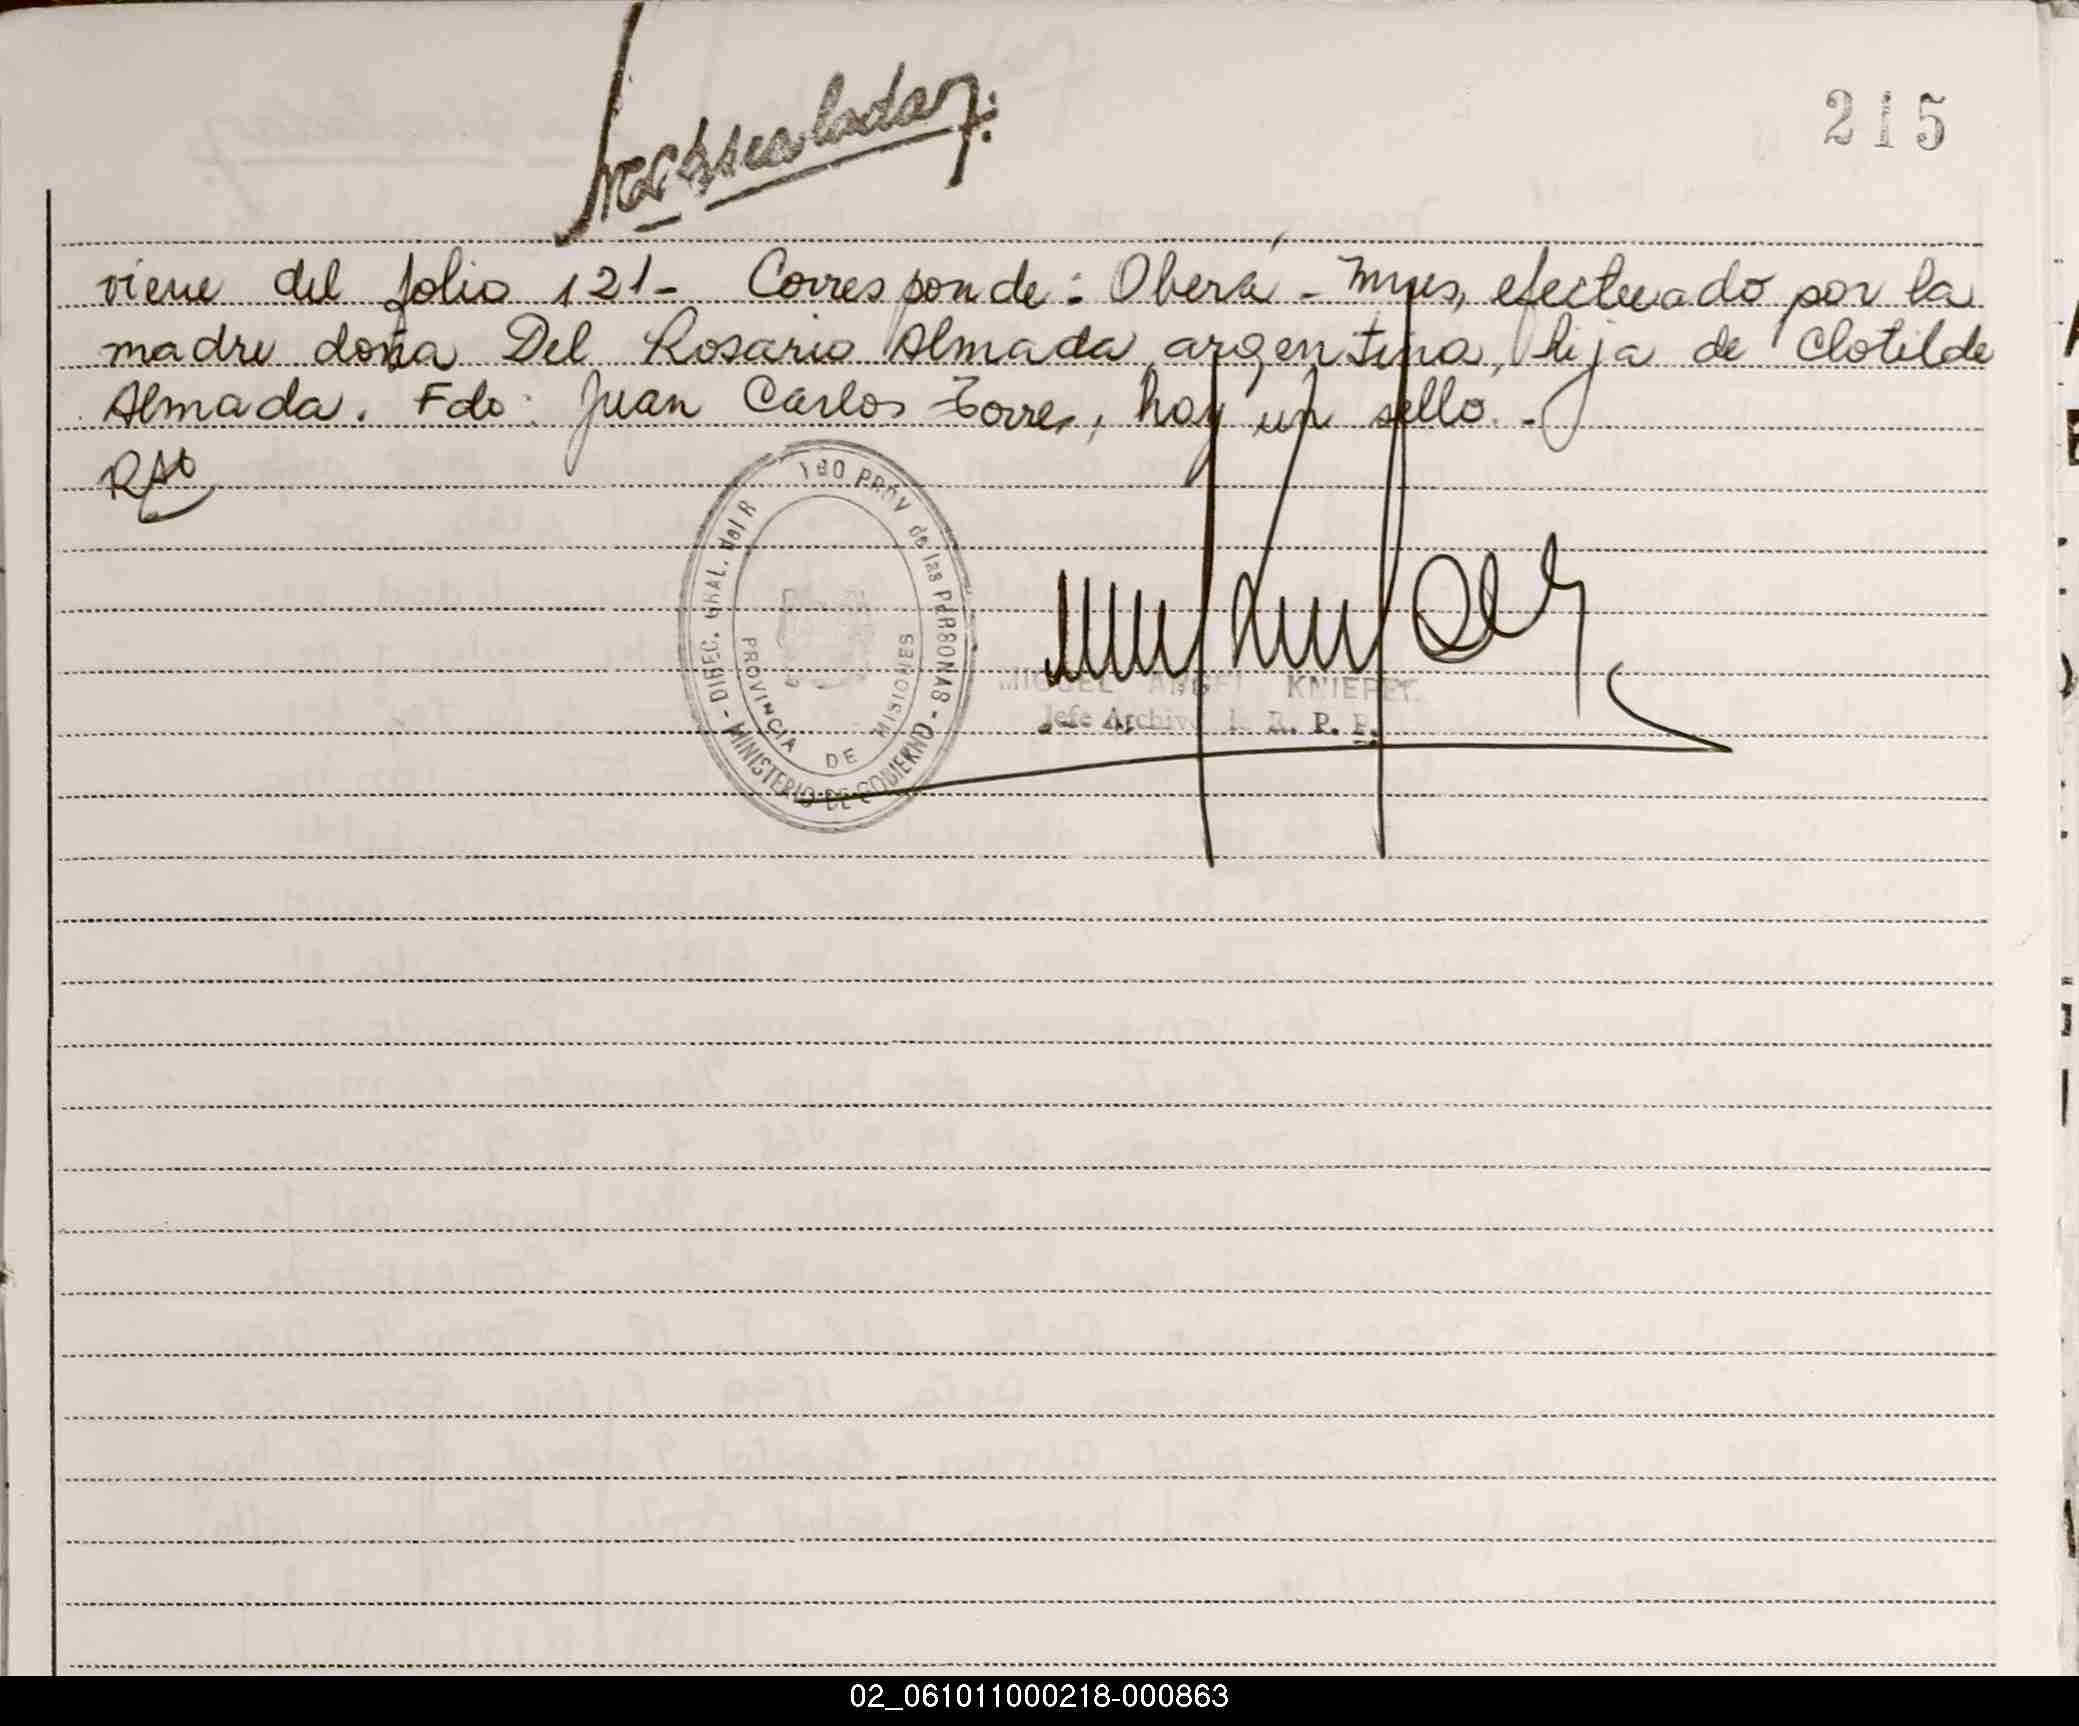 215
viene del folio 121- Corresponde: Oberá - Mnes, efectuado por la
madre doña Del Rosario Almada, argentina, hija de Clotilde
Almada. Fdo: Juan Carlos Torres, hay un sello.-
DIREC. GRAL. del R
PROV de las PERSONAS - MINISTERIO DE GOBIERNO -
PROVINCIA DE MISIONES
MIGUEL ANGEL
Jefe Archivo R. P. P.
02_061011000218-000863